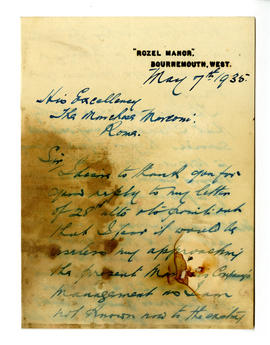 "ROZEL MANOR,"
BOURNEMOUTH, WEST.
May 7th 1935.
His Excellency
The Marchese Marconi.
Rome.
Sir
I have to thank you for
your reply to my letter
of 28 ulto & to point out
that I fear it would be
useless my approaching
the present Company's
Management as I am
not known now to the